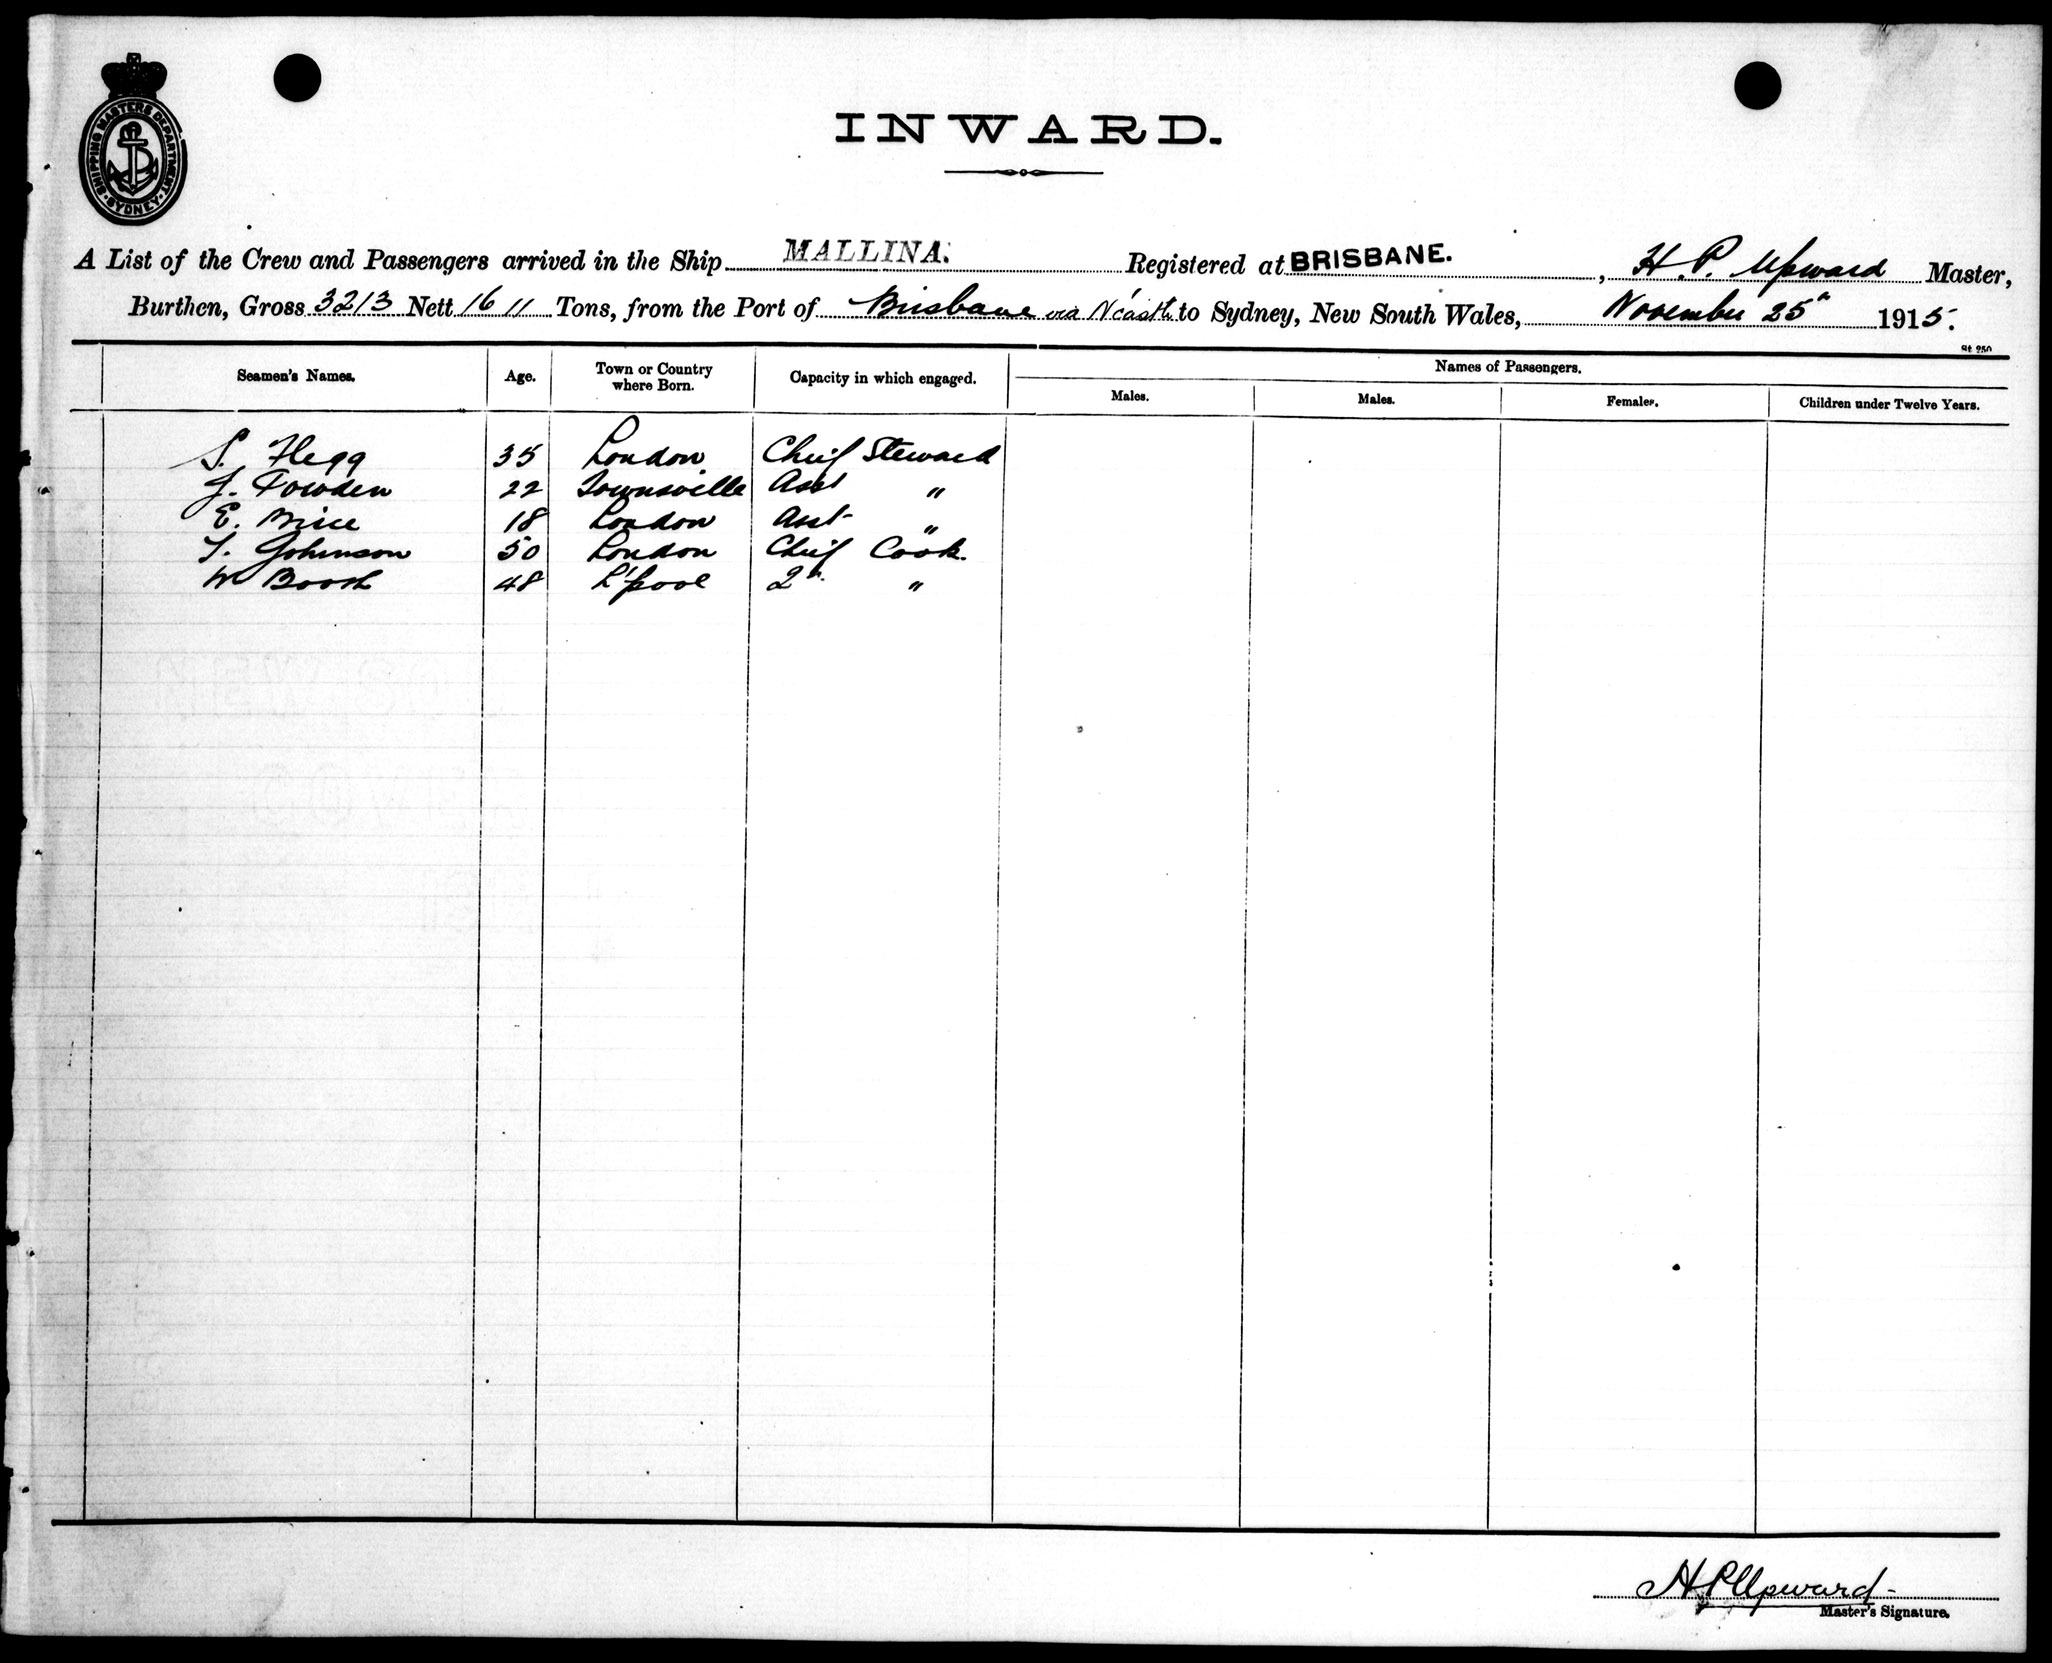 SHIPPING MASTERS DEPARTMENT
SYDNEY
INWARD.
A List of the Crew and Passengers arrived in the Ship MALLINA. Registered at BRISBANE. , H. P. Upward Master,
Burthen, Gross 3213 Nett 1611 Tons, from the Port of Brisbane via N'castle to Sydney, New South Wales, November 25" 1915.
St 250
Seamen's Names. Age. Town or Country where Born. Capacity in which engaged. Names of Passengers.
Males. Males. Females. Children under Twelve Years.
S. Flegg 35 London Chief Steward
J. Cowden 22 Townsville Asst "
E. Brice 18 London Asst "
T. Johnson 50 London Chief Cook.
W Booth 48 L'pool 2n "
HP Upward
Master's Signature.